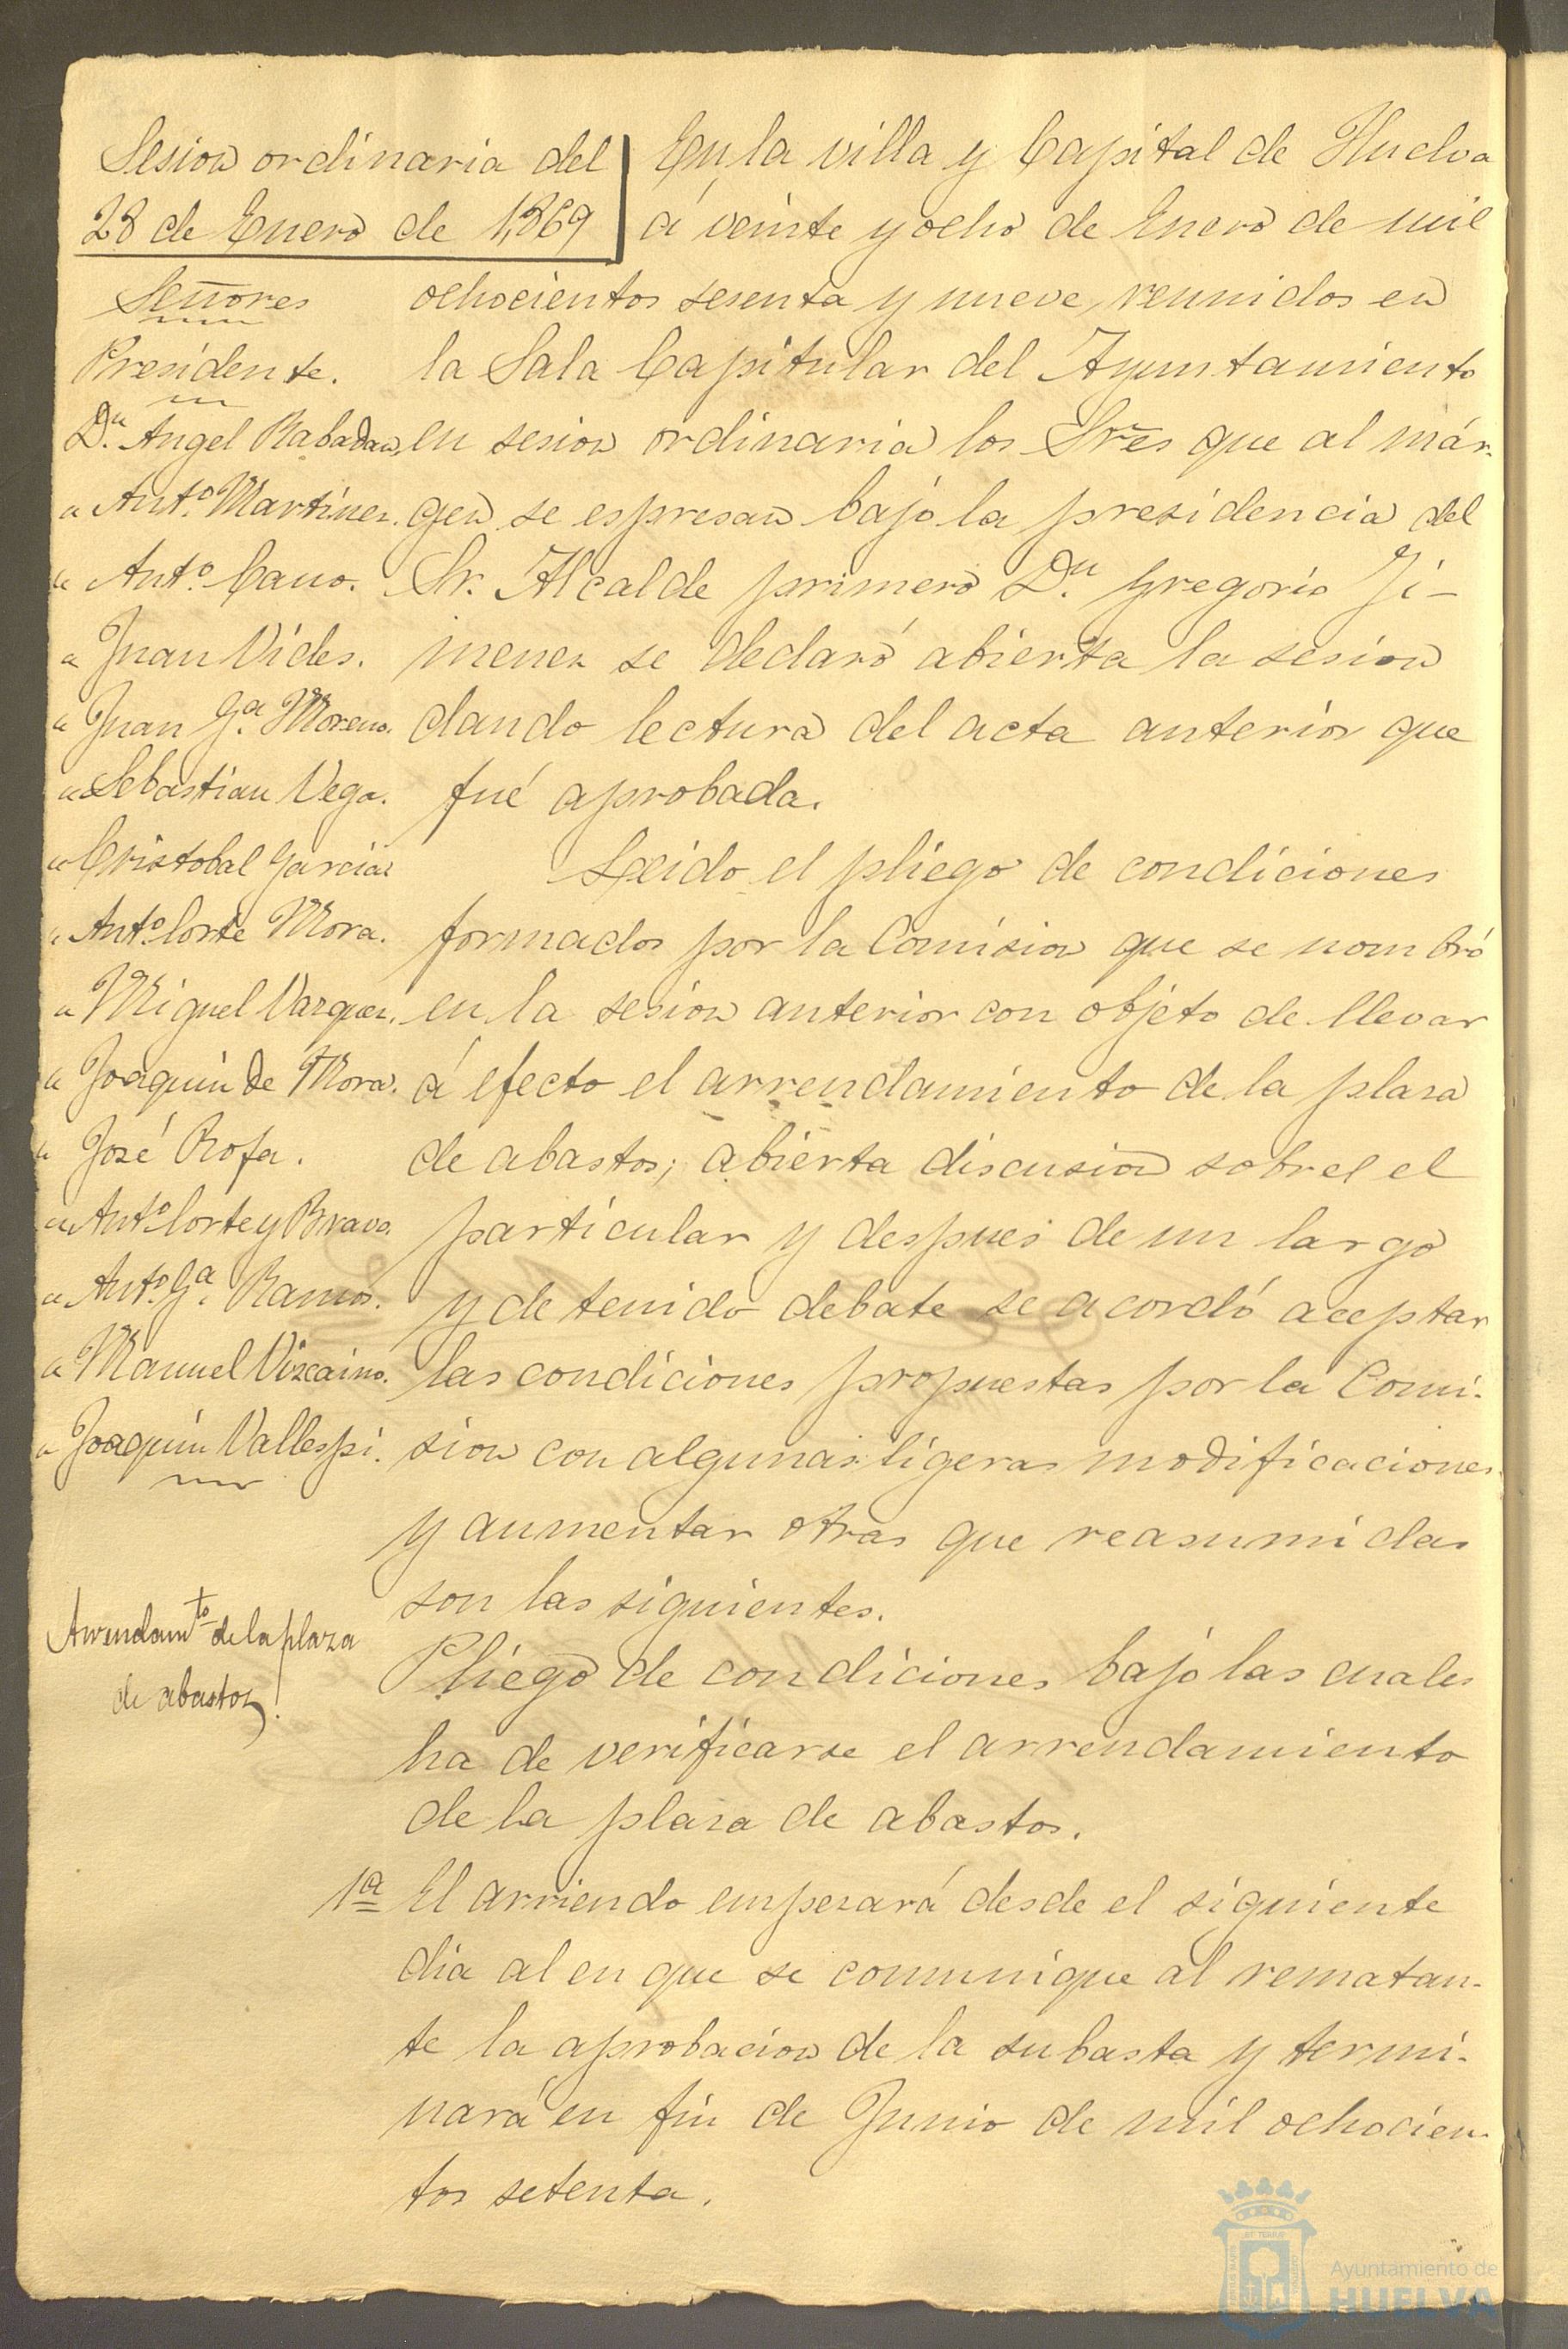 Sesion ordinaria del
28 de Enero de 1,869
Señores
Presidente.
Dn. Angel Rabadan,
" Antº. Martinez.
" Antº. Cano.
" Juan Vides.
" Juan Gª. Moreno.
" Sebastian Vega.
" Cristobal Garcia
" Antº. Corte Mora.
" Miguel Vazquez.
" Joaquin de Mora.
" José Rofa.
" Antº. Corte y Bravo.
" Antº. Gª. Ramos.
" Manuel Vizcaino.
" Joaquin Vallespi.
Arrendamto. de la plaza
de abastos.
En la villa y Capital de Huelva
á veinte y ocho de Enero de mil
ochocientos sesenta y nueve, reunidos en
la Sala Capitular del Ayuntamiento
en sesion ordinaria los Sres que al már-
gen se espresan bajo la presidencia del
Sr. Alcalde primero Dn. Gregorio Ji-
menez se declaró abierta la sesion
dando lectura del acta anterior que
fué aprobada.
Leido el pliego de condiciones
formados por la Comision que se nombró
en la sesion anterior con objeto de llevar
á efecto el arrendamiento de la plaza
de abastos; abierta discusion sobre el el
particular y despues de un largo
y detenido debate se acordó aceptar
las condiciones propuestas por la Comi-
sion con algunas ligeras modificaciones
y aumentar otras que reasumidas
son las siguientes.
Pliego de condiciones bajo las cuales
ha de verificarse el arrendamiento
de la plaza de abastos.
1ª El arriendo empezará desde el siguiente
dia al en que se comunique al rematan-
te la aprobacion de la subasta y termi-
nará en fin de Junio de mil ochocien-
tos setenta.
Ayuntamiento de
HUELVA